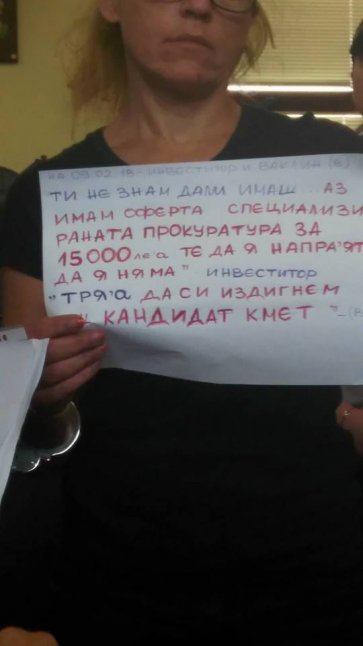 НА 09.02.18 - ИНВЕСТИТОР И ВАКЛИН (В)
ТИ НЕ ЗНАМ ДАЛИ ИМАШ... АЗ
ИМАМ ОФЕРТА СПЕЦИАЛИЗИ
РАНАТА ПРОКУРАТУРА ЗА
15000 лева ТЕ ДА Я НАПРА'ЯТ
ДА Я НЯМА" - ИНВЕСТИТОР
"ТРЯ'А ДА СИ ИЗДИГНЕМ
КАНДИДАТ КМЕТ" - (В